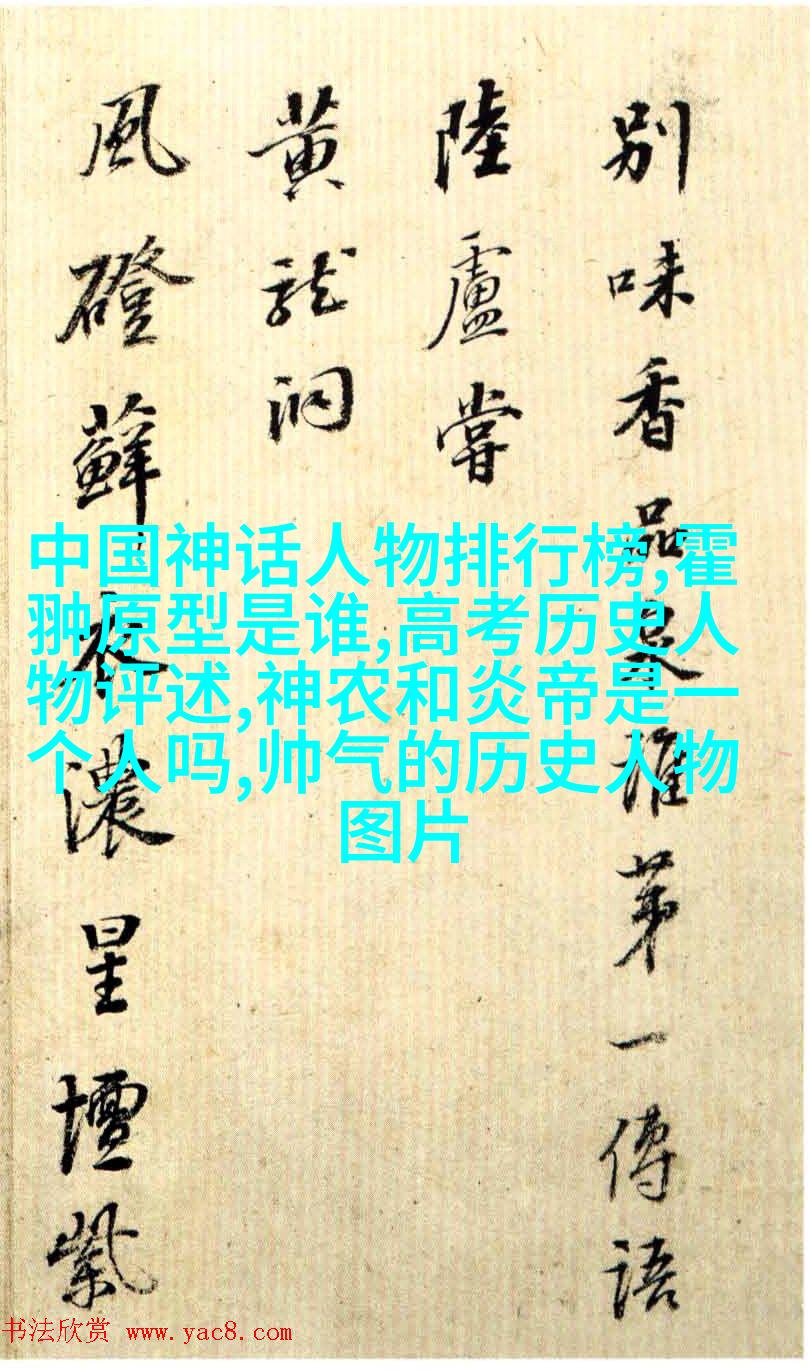 别味香品泉誰第一傳語
陸盧嘗
黄龍洞
風磴蘚衣濃星壇紫
中国神话人物排行榜,霍
翀原型是谁,高考历史人
物评述,神农和炎帝是一
个人吗,帅气的历史人物
图片
书法欣赏 www.yac8.com